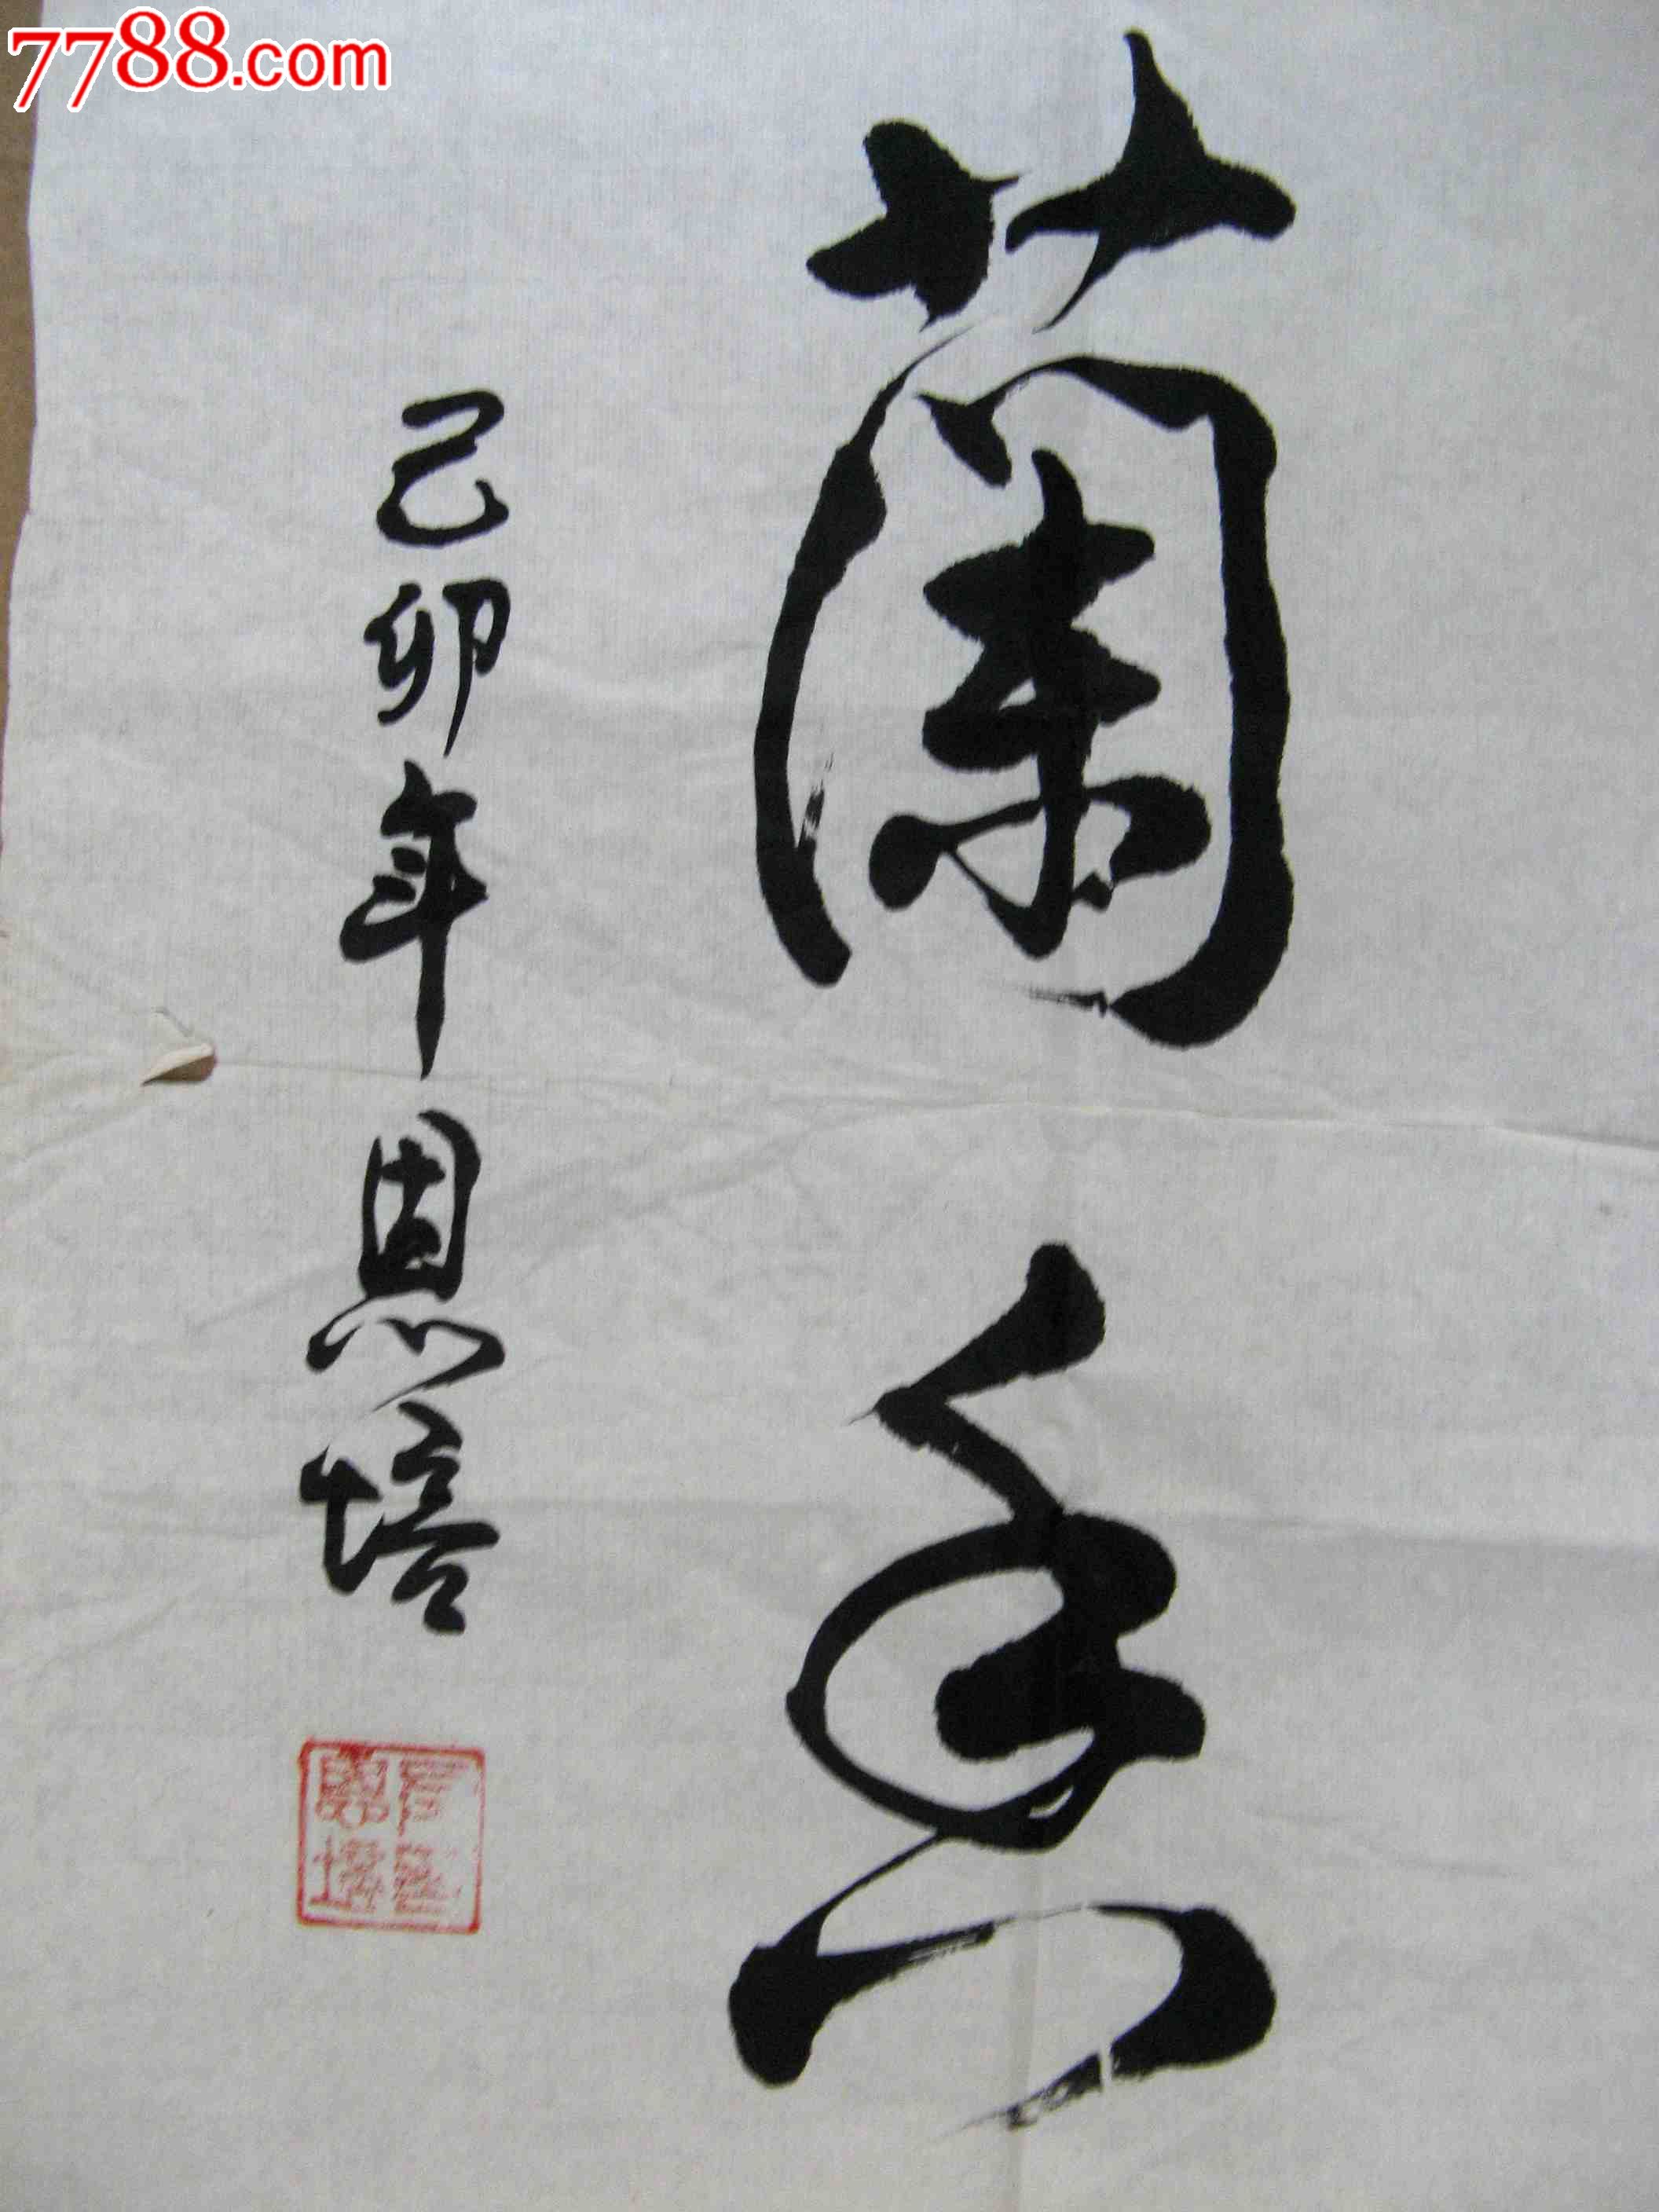 7788.com
蘭
己卯年恩培